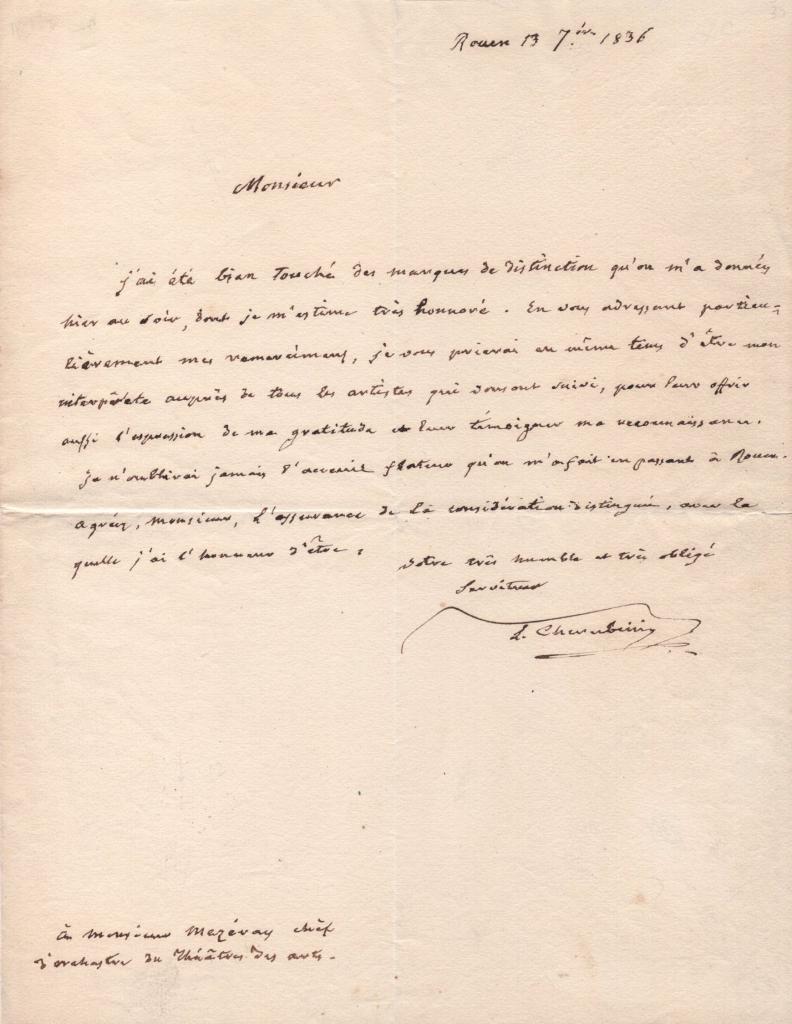 Rouen 13 7.bre 1836
Monsieur
j'ai été bien touché des marques de distinction qu'on m'a données
hier au soir, dont je m'estime très honnoré. En vous adressant particu-
lièrement mes remercîmens, je vous prierai en même tems d'être mon
interprète auprès de tous les artistes qui vous ont suivi, pour leur offrir
aussi l'expression de ma gratitude et leur témoigner ma reconnaissance.
je n'oublirai jamais l'accueil flateur qu'on m'a fait en passant à Rouen.
agréez, monsieur, l'assurance de la considération distinguée, avec la
quelle j'ai l'honneur d'être,
votre très humble et très obligé
Serviteur
L. Cherubini
à monsieur Mezéray chef
d'orchestre du Théâtres des arts.